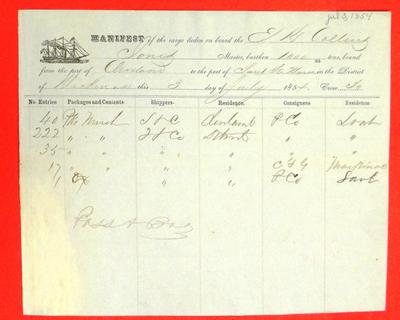 jul 3, 1854
MANIFEST of the cargo laden on board the E K Collins
Jones Master, burthen 1000 tons, bound
from the port of Cleveland to the port of Saut Ste Marie in the District
of Mackinac this 3 day of July 1854.
No. Entries Packages and Contents. Shippers. Residence. Consignees Residence
40 Pks Mdse S & C Cleveland P Co Saut
222 " " F & C Detroit " "
35 " " " " " "
17 " " " " C & G Mackinac
1 Ox " " P Co Saut
Pass & Bag